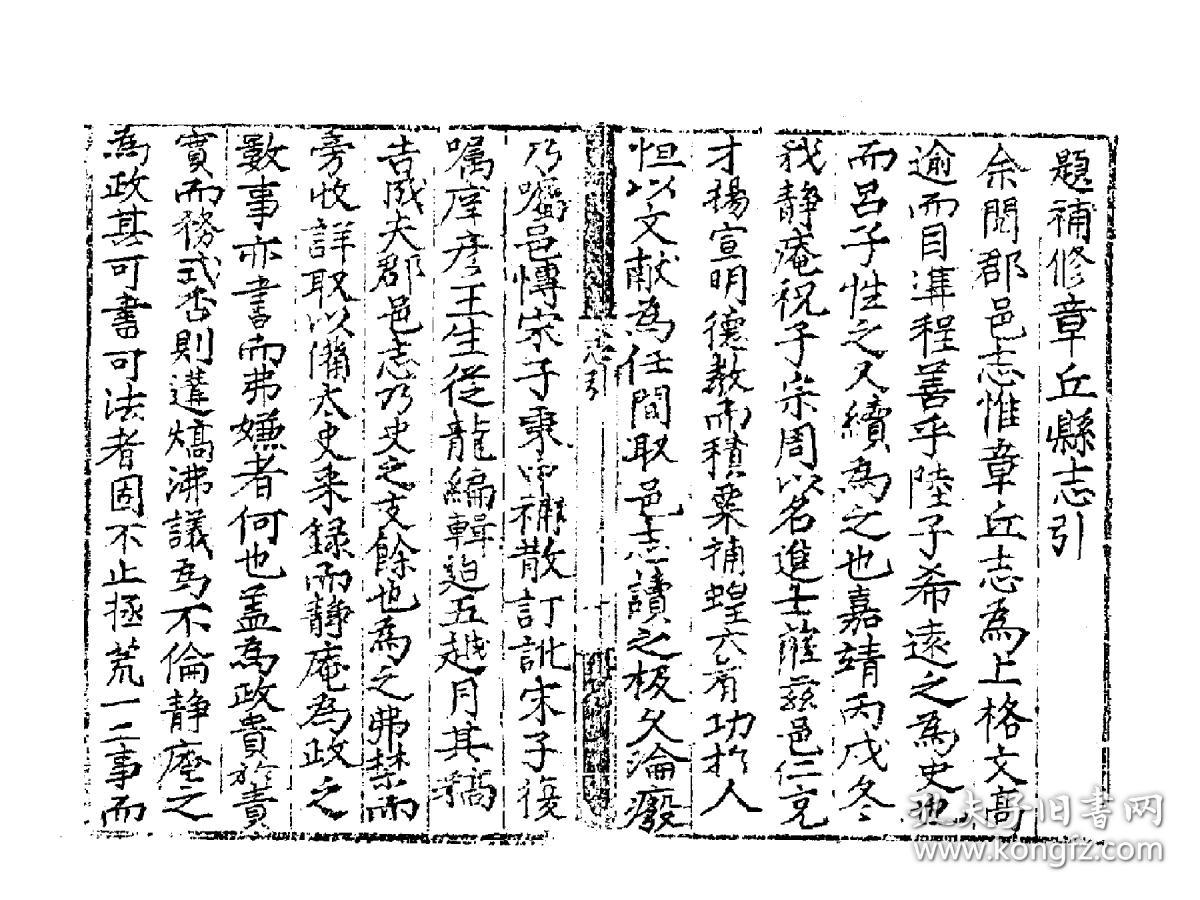 題補修章丘縣志引
余閱郡邑志惟章丘志為上格文高
逾而目溝程善乎陸子希遠之為史也
而呂子性之又續為之也嘉靖丙戌冬
我靜庵祝子宗周以名進士蒞茲邑仁克
才揚宣明德教而積粟捕蝗六有功扵人
恒以文献為任間取邑志讀之板久淪廢
乃囑邑慱宋子秉中補散訂訛宋子復
嘱庠彦王生従龍編輯迨五越月其稿
告成夫郡邑志乃史之支餘也為之弗禁而
旁收詳取以備太史采録而静庵為政之
數事亦書而弗嫌者何也盖為政貴扵責
實而務式否則遘熇沸議為不倫静庵之
為政其可書可法者固不止拯荒一二事而
志引
孔夫子旧书网
www.kongfz.com